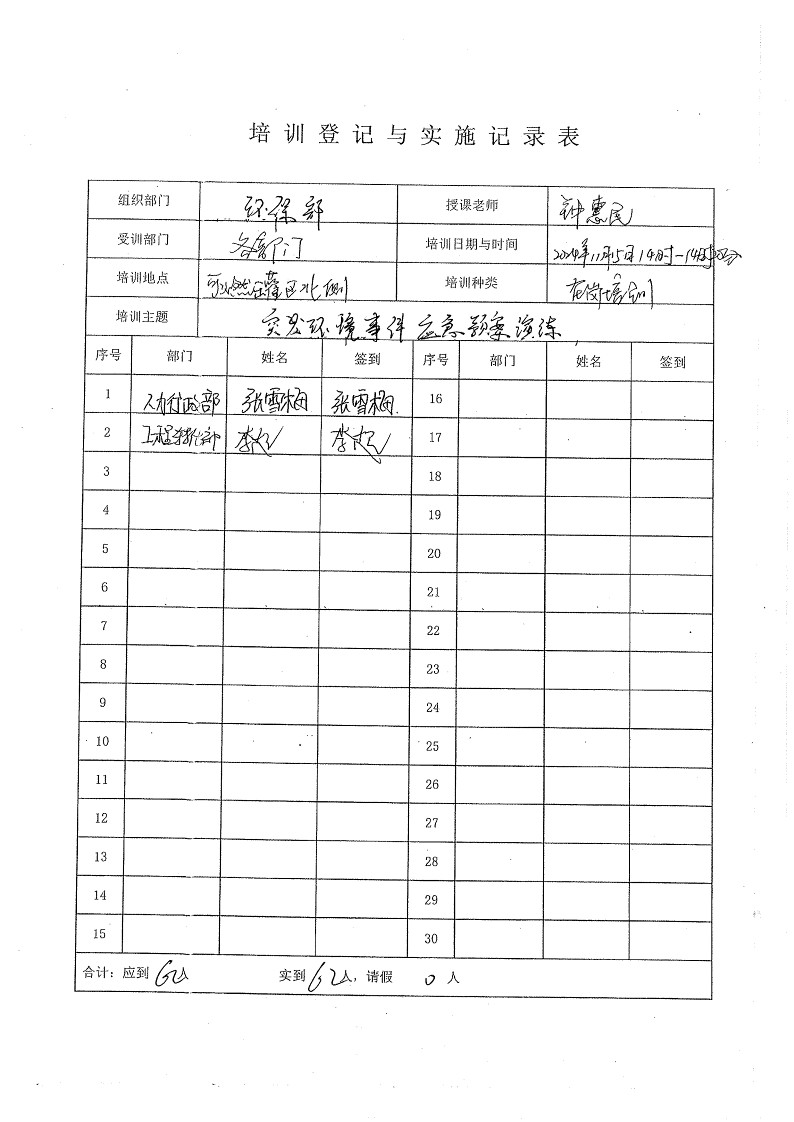 培训登记与实施记录表
组织部门 环保部 授课老师 钟惠民
受训部门 各部门 培训日期与时间 2024年11月15日14时-14时
培训地点 可燃 区北侧 培训种类 在岗培训
培训主题 突发环境事件应急预案演练
序号 部门 姓名 签到 序号 部门 姓名 签到
1 行政部 张雪梅 张雪梅 16
2 工程 部 李 李 17
3 18
4 19
5 20
6 21
7 22
8 23
9 24
10 25
11 26
12 27
13 28
14 29
15 30
合计：应到 62人 实到 62人，请假 0 人